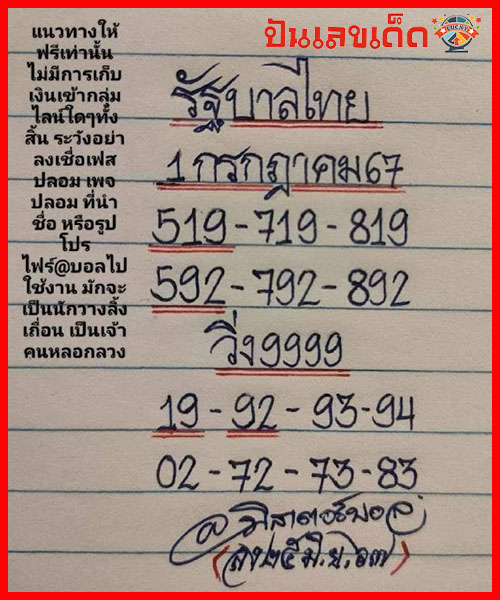 ปันเลขเด็ด
LUCKY
แนวทางให้
ฟรีเท่านั้น
ไม่มีการเก็บ
เงินเข้ากลุ่ม
ไลน์ใดๆทั้ง
สิ้น ระวังอย่า
ลงเชื่อเฟส
ปลอม เพจ
ปลอม ที่นำ
ชื่อ หรือรูป
โปร
ไฟร์@บอลไป
ใช้งาน มักจะ
เป็นนักวางลิ้ง
เถื่อน เป็นเจ้า
คนหลอกลวง
รัฐบาลไทย
1 กรกฎาคม67
519-719-819
592-792-892
วิ่ง9999
19-92-93-94
02-72-73-83
(ลง๒๕ มิ.ย.๖๗)